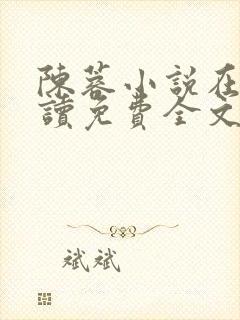 陳蓉小說在
讀免費全文
斌斌